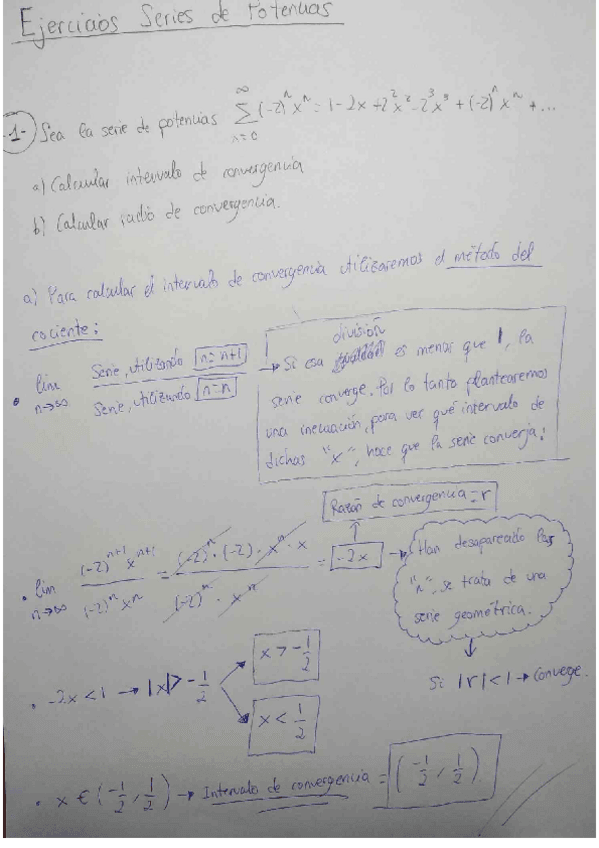 Ejercicios Series de Potencias
-1- Sea la serie de potencias ∑_{n=0}^{∞} (-2)^n x^n = 1 - 2x + 2^2 x^2 - 2^3 x^3 + (-2)^n x^n + ...
a) Calcular intervalo de convergencia
b) Calcular radio de convergencia.
a) Para calcular el intervalo de convergencia utilizaremos el método del
cociente:
• lim n→∞ Serie, utilizando n=n+1 / Serie, utilizando n=n
división
→ Si esa es menor que 1, la
serie converge. Por lo tanto plantearemos
una inecuación, para ver qué intervalo de
dichas "x", hace que la serie converja:
Razón de convergencia = r
• lim n→∞ (-2)^{n+1} x^{n+1} / (-2)^n x^n = (-2)^n · (-2) · x^n · x / (-2)^n · x^n = -2x
→ Han desaparecido las
"n", se trata de una
serie geométrica.
Si |r| < 1 → Converge.
• -2x < 1 → |x| > -1/2
x > -1/2
x < 1/2
• x ∈ (-1/2, 1/2) → Intervalo de convergencia = (-1/2, 1/2)